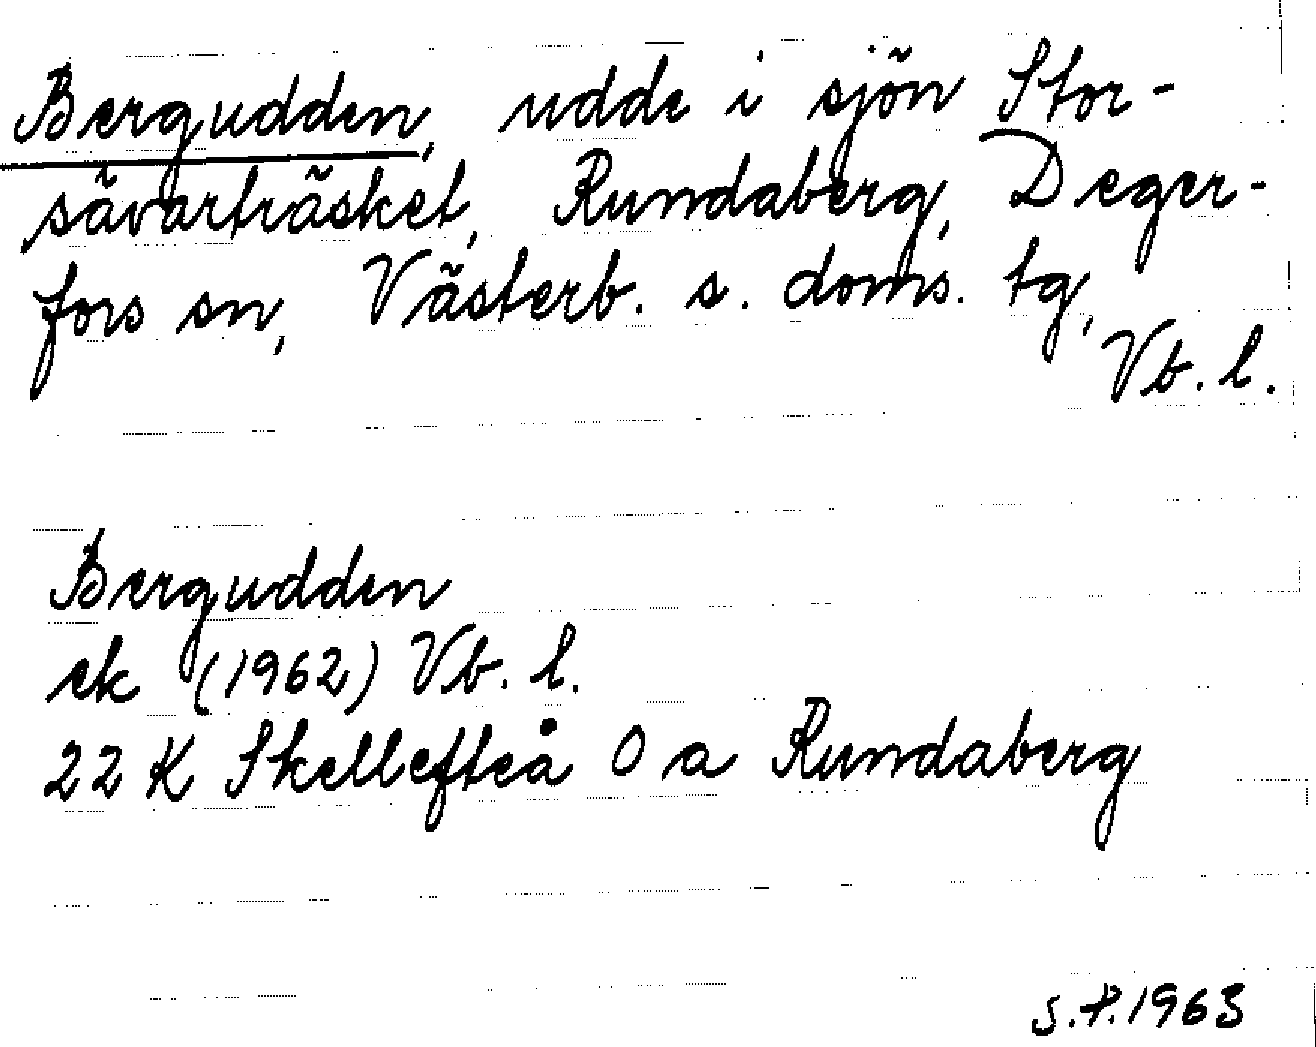 Bergudden, udde i sjön Stor-
sävarträsket, Rundaberg, Deger-
fors sn, Västerb. s. doms. tg,
Vb. l.
Bergudden
ek (1962) Vb. l.
22 K Skellefteå 0 a Rundaberg
S.P. 1963